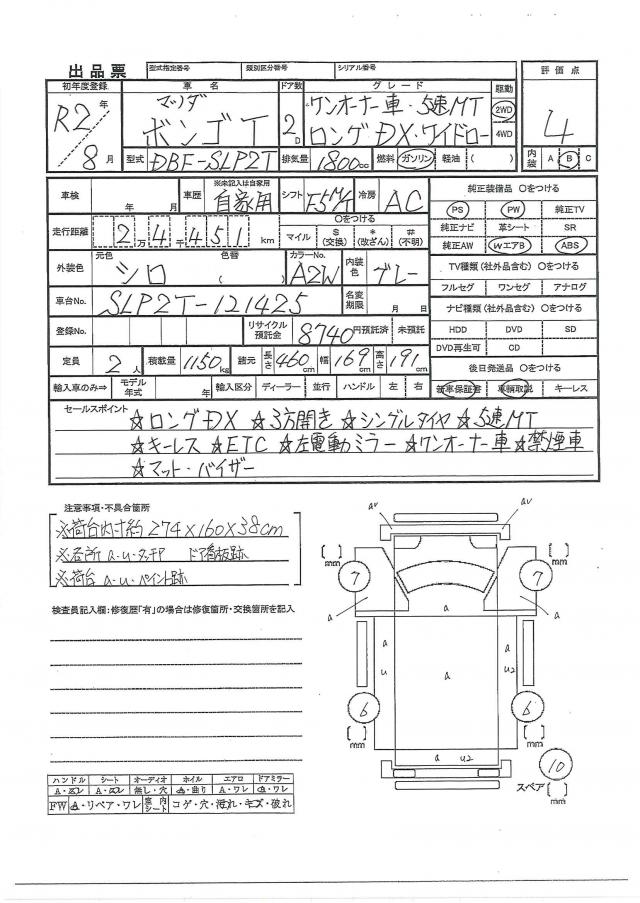 出品票 型式指定番号 類別区分番号 シリアル番号
初年度登録 車名 ドア数 グレード 駆動 評価点
R2年 8月 マツダ ボンゴT 2D ワンオーナー車・5速MT ロングDX・ワイドロー 2WD 4WD 4
型式 DBF-SLP2T 排気量 1800cc 燃料 ガソリン 軽油 ( ) 内装 A B C
車検 年 月 車歴 ※未記入は自家用 自家用 シフト F5M/T 冷房 AC 純正装備品 〇をつける
PS PW 純正TV
走行距離 2万4千451km 〇をつける マイル $(交換) *(改ざん) #(不明) 純正ナビ 革シート SR
純正AW WエアB ABS
外装色 元色 シロ 色替 ( ) カラーNo. A2W 内装色 グレー TV種類(社外品含む) 〇をつける
フルセグ ワンセグ アナログ
車台No. SLP2T-121425 名変期限 月 日 ナビ種類(社外品含む) 〇をつける
登録No. リサイクル預託金 8740円預託済 未預託 HDD DVD SD
DVD再生可 CD
定員 2人 積載量 1150kg 諸元 長さ460cm 幅169cm 高さ191cm 後日発送品 〇をつける
輸入車のみ⇒ モデル年式 年 輸入区分 ディーラー 並行 ハンドル 左 右 新車保証書 車輌取説 キーレス
セールスポイント
☆ロングDX ☆3方開き ☆シングルタイヤ ☆5速MT
☆キーレス ☆ETC ☆左電動ミラー ☆ワンオーナー車 ☆禁煙車
☆マット・バイザー
注意事項・不具合箇所
※荷台内寸約274×160×38cm
※各所a・u・タッチP ドア看板跡
※荷台a・u・ペイント跡
検査員記入欄:修復歴「有」の場合は修復箇所・交換箇所を記入
av av
[ ] mm [ ] mm
7 7
a a a a
a
a a
u a u2
6 6
[ ] mm [ ] mm
a u2
10
スペア [ ] mm
ハンドル シート オーディオ ホイル エアロ ドアミラー
A・ズレ A・ズレ 無し・穴 a・曲り A・ワレ a・ワレ
FW a・リペア・ワレ 室内シート コゲ・穴・汚れ・キズ・破れ